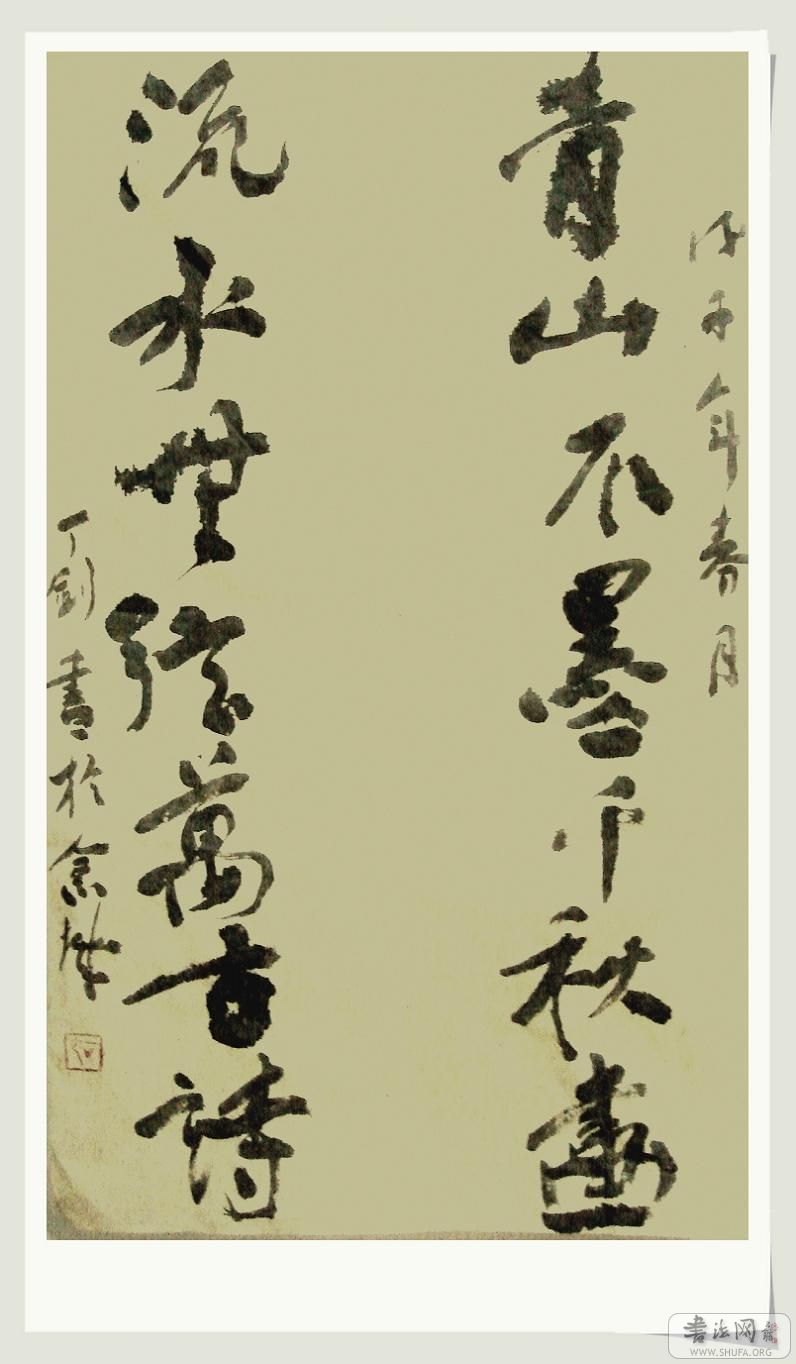 戊子年春月
青山不墨千秋畫
流水無弦萬古詩
丁剑書於
書法网
WWW.SHUFA.ORG